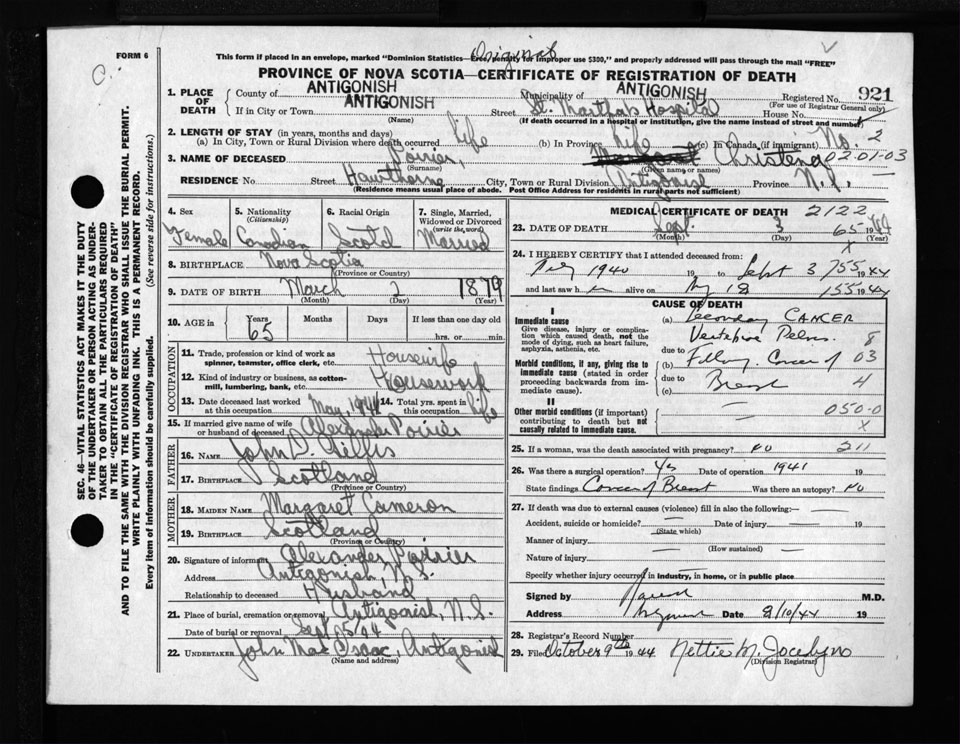 FORM 6
This form if placed in an envelope, marked "Dominion Statistics—Free, penalty for improper use $300," and properly addressed will pass through the mail "FREE"
Original
PROVINCE OF NOVA SCOTIA—CERTIFICATE OF REGISTRATION OF DEATH
1. PLACE OF DEATH
County of ANTIGONISH Municipality of ANTIGONISH Registered No. 921
(For use of Registrar General only)
If in City or Town ANTIGONISH Street St. Martha's Hospital House No.
(Name) (If death occurred in a hospital or institution, give the name instead of street and number)
2. LENGTH OF STAY (in years, months and days)
(a) In City, Town or Rural Division where death occurred life (b) In Province life (c) In Canada (if immigrant) No. 2
3. NAME OF DECEASED Poirier, Margaret Christena 02-01-03
(Surname) (Given name or names)
RESIDENCE No Street Hawthorne City, Town or Rural Division Antigonish Province N.S.
(Residence means usual place of abode. Post Office Address for residents in rural parts not sufficient)
SEC. 46—VITAL STATISTICS ACT MAKES IT THE DUTY OF THE UNDERTAKER OR PERSON ACTING AS UNDERTAKER TO OBTAIN ALL THE PARTICULARS REQUIRED IN THE "CERTIFICATE OF REGISTRATION OF DEATH" AND TO FILE THE SAME WITH THE DIVISION REGISTRAR WHO SHALL ISSUE THE BURIAL PERMIT.
WRITE PLAINLY WITH UNFADING INK. THIS IS A PERMANENT RECORD.
Every item of information should be carefully supplied. (See reverse side for instructions.)
4. Sex Female
5. Nationality (Citizenship) Canadian
6. Racial Origin Scotch
7. Single, Married, Widowed or Divorced (write the word) Married
8. BIRTHPLACE Nova Scotia
(Province or Country)
9. DATE OF BIRTH March 2 1879
(Month) (Day) (Year)
10. AGE in Years 65 Months Days If less than one day old
hrs. or min.
OCCUPATION
11. Trade, profession or kind of work as spinner, teamster, office clerk, etc. Housewife
12. Kind of industry or business, as cotton-mill, lumbering, bank, etc. Housework
13. Date deceased last worked at this occupation May, 1944 14. Total yrs. spent in this occupation life
15. If married give name of wife or husband of deceased Alexander Poirier
FATHER
16. NAME John D. Gillis
17. BIRTHPLACE Scotland
(Province or Country)
MOTHER
18. MAIDEN NAME Margaret Cameron
19. BIRTHPLACE Scotland
(Province or Country)
20. Signature of informant Alexander Poirier
Address Antigonish, N.S.
Relationship to deceased Husband
21. Place of burial, cremation or removal Antigonish, N.S.
Date of burial or removal Sept 5
22. UNDERTAKER John MacIsaac, Antigonish
(Name and address)
MEDICAL CERTIFICATE OF DEATH 2122
23. DATE OF DEATH Sept. 3 65 1944
(Month) (Day) (Year)
X
24. I HEREBY CERTIFY that I attended deceased from:
1940 19 to Sept 3 755 1944
and last saw h alive on 18 155 1944
CAUSE OF DEATH
I
Immediate cause
Give disease, injury or complication which caused death, not the mode of dying, such as heart failure, asphyxia, asthenia, etc.
(a) Secondary CANCER
Vertebrae Pelvis 8
due to
Morbid conditions, if any, giving rise to immediate cause (stated in order proceeding backwards from immediate cause).
(b) Following Cancer of 03
due to Breast 4
(c)
II
Other morbid conditions (if important) contributing to death but not causally related to immediate cause.
050-0
X
25. If a woman, was the death associated with pregnancy? no 211
26. Was there a surgical operation? Yes Date of operation 1941 19
State findings Cancer of Breast Was there an autopsy? no
27. If death was due to external causes (violence) fill in also the following:
Accident, suicide or homicide? Date of injury 19
(State which)
Manner of injury
(How sustained)
Nature of injury
Specify whether injury occurred in industry, in home, or in public place
Signed by M.D.
Address Date 8/10/44 19
28. Registrar's Record Number
29. Filed October 9th 1944 Nettie M. Jocelyn
(Division Registrar)